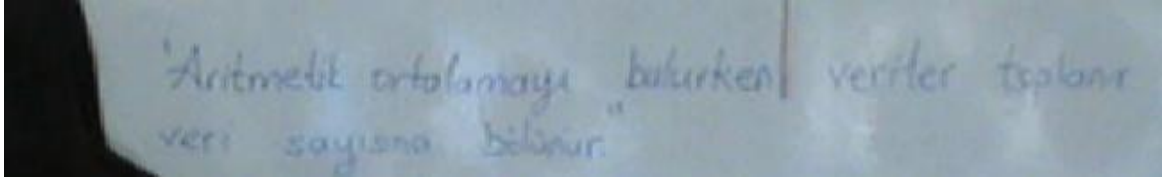 "Aritmetik ortalamayı bulurken veriler toplanır
veri sayısına bölünür."